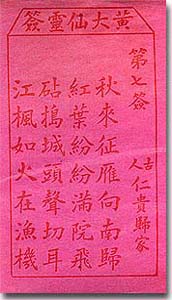 黃大仙靈簽
第七簽
古人
仁貴歸家
秋來征雁向南歸
紅葉紛紛滿院飛
砧搗城頭聲切耳
江楓如火在漁機